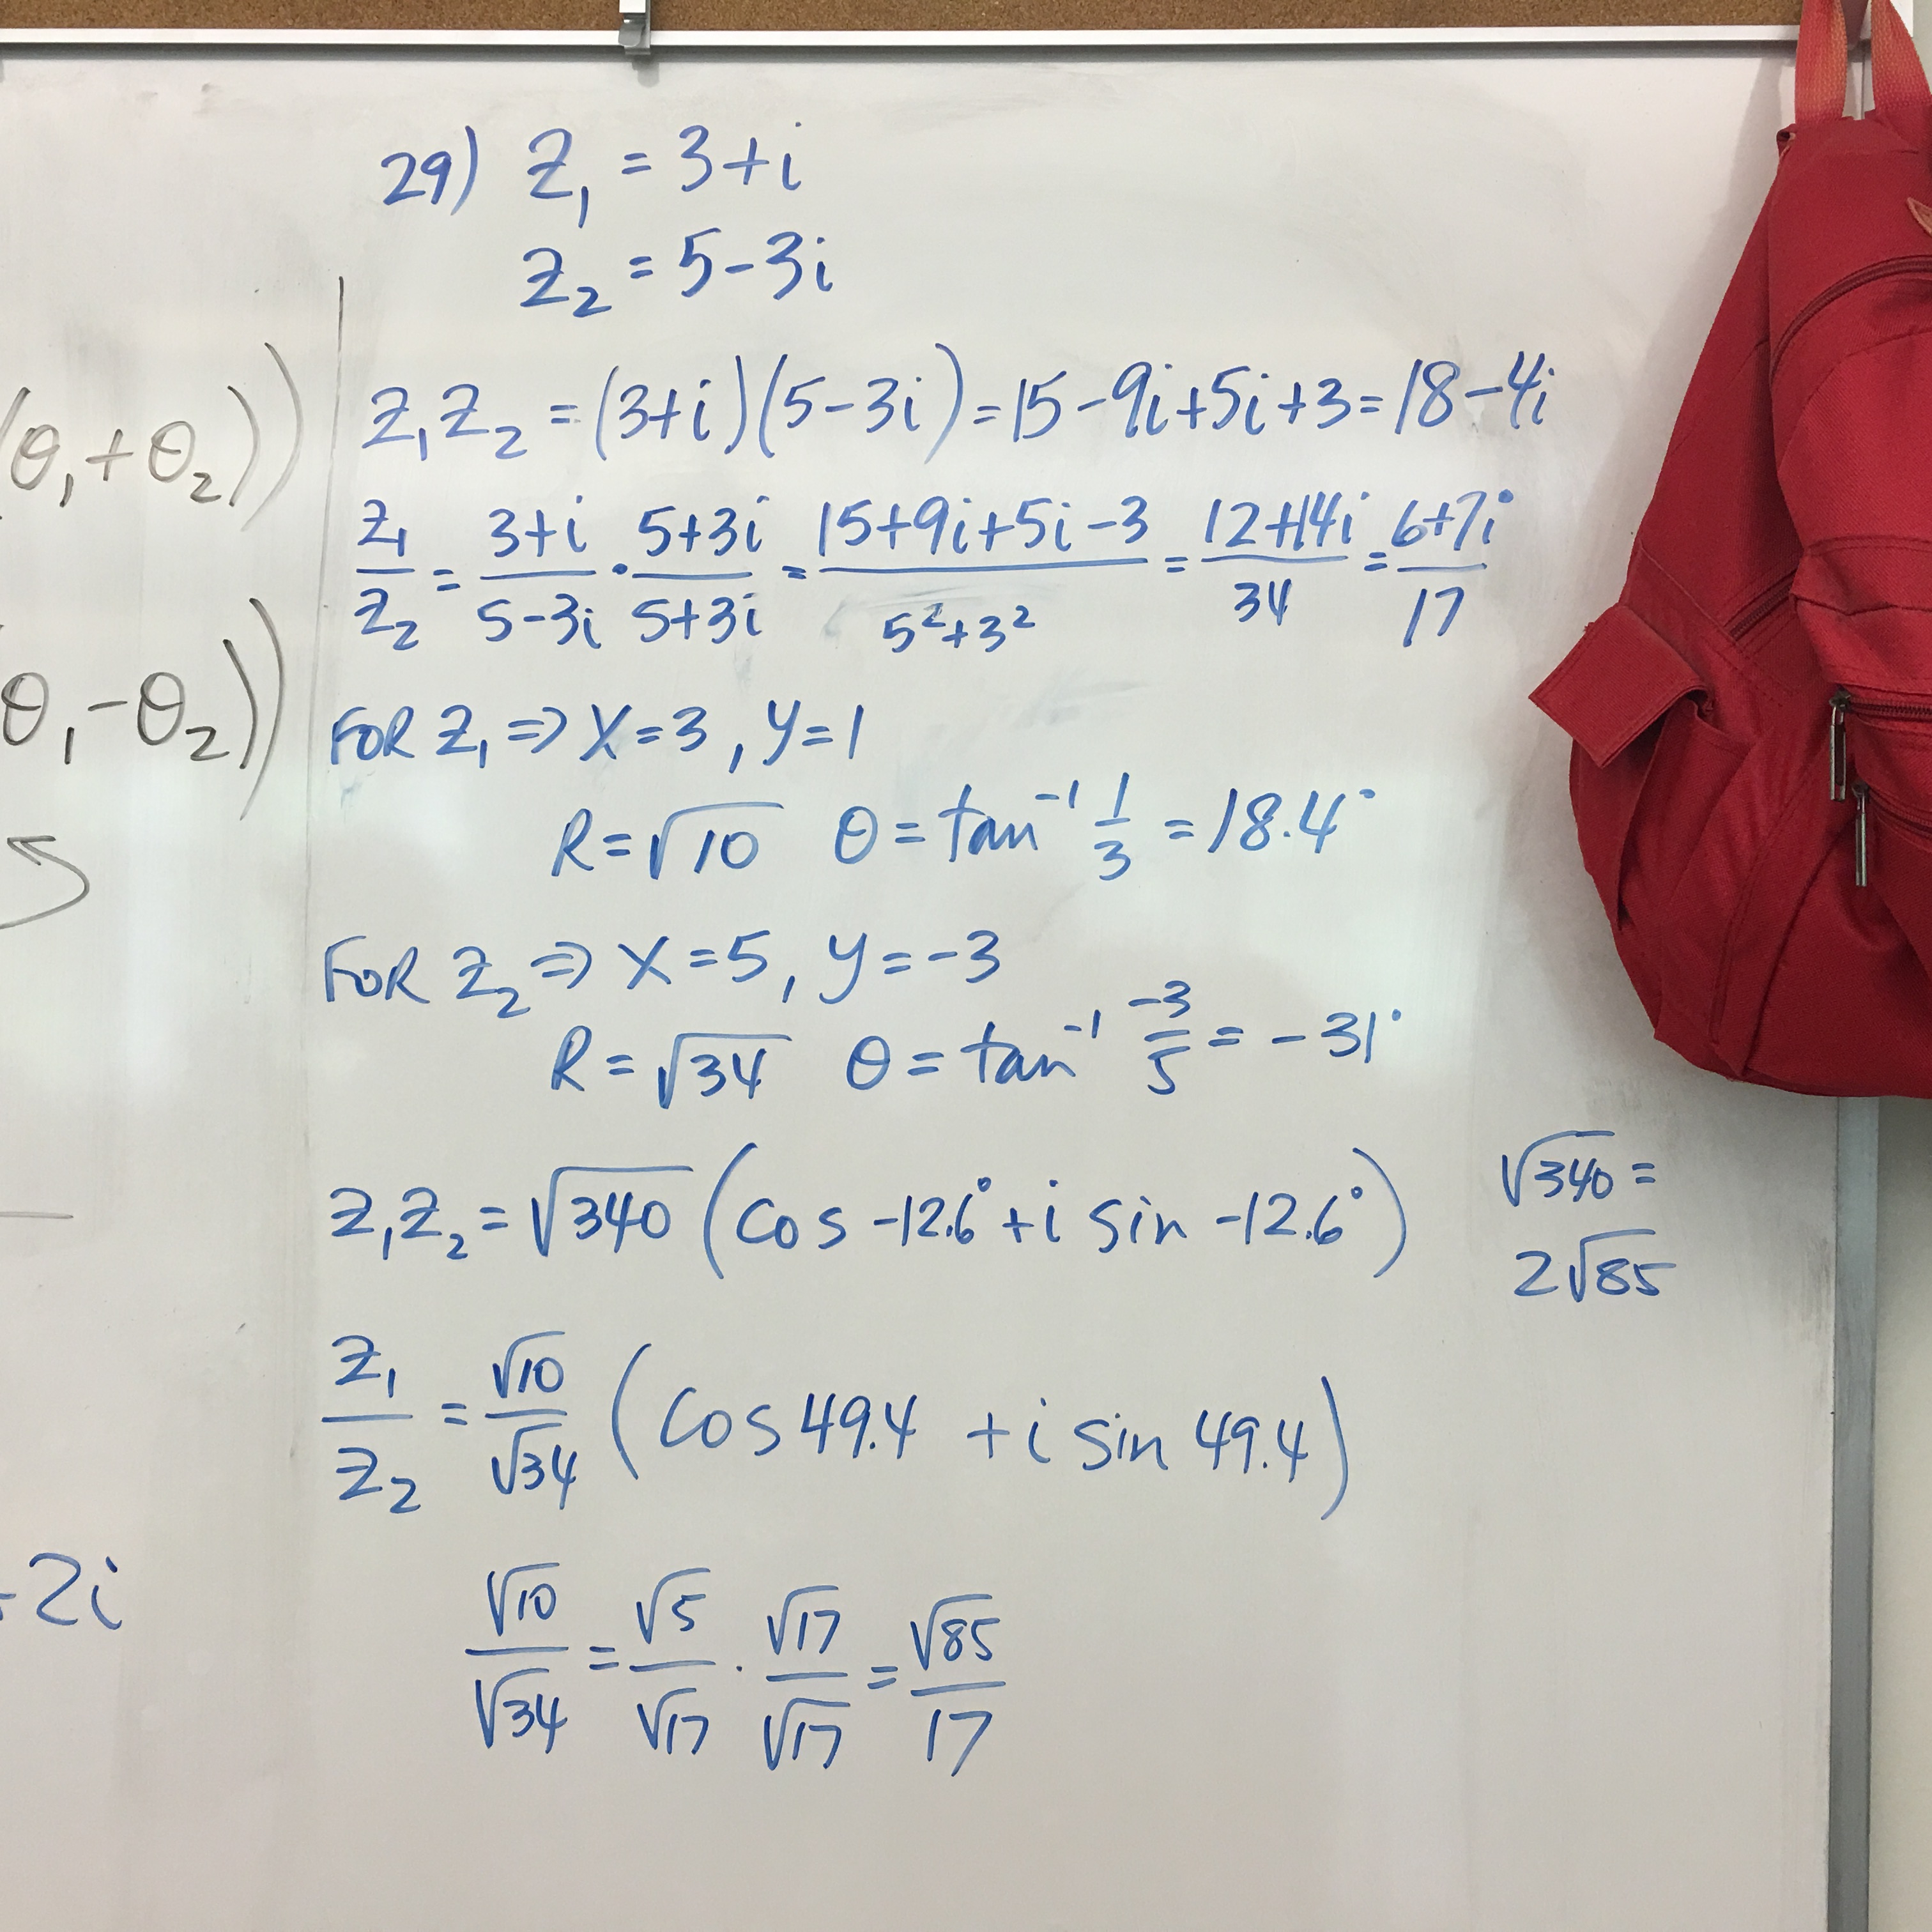 29) Z₁ = 3+i
Z₂ = 5-3i
(θ₁+θ₂))
Z₁Z₂ = (3+i)(5-3i) = 15-9i+5i+3 = 18-4i
Z₁/Z₂ = (3+i)/(5-3i) • (5+3i)/(5+3i) = (15+9i+5i-3)/(5²+3²) = (12+14i)/34 = (6+7i)/17
θ₁-θ₂))
FOR Z₁ => X=3, y=1
R=√10 θ = tan⁻¹ 1/3 = 18.4°
FOR Z₂ => X=5, y=-3
R=√34 θ = tan⁻¹ -3/5 = -31°
Z₁Z₂ = √340 (cos -12.6° + i sin -12.6°)
√340 =
2√85
Z₁/Z₂ = √10/√34 (cos 49.4 + i sin 49.4)
-2i
√10/√34 = √5/√17 · √17/√17 = √85/17